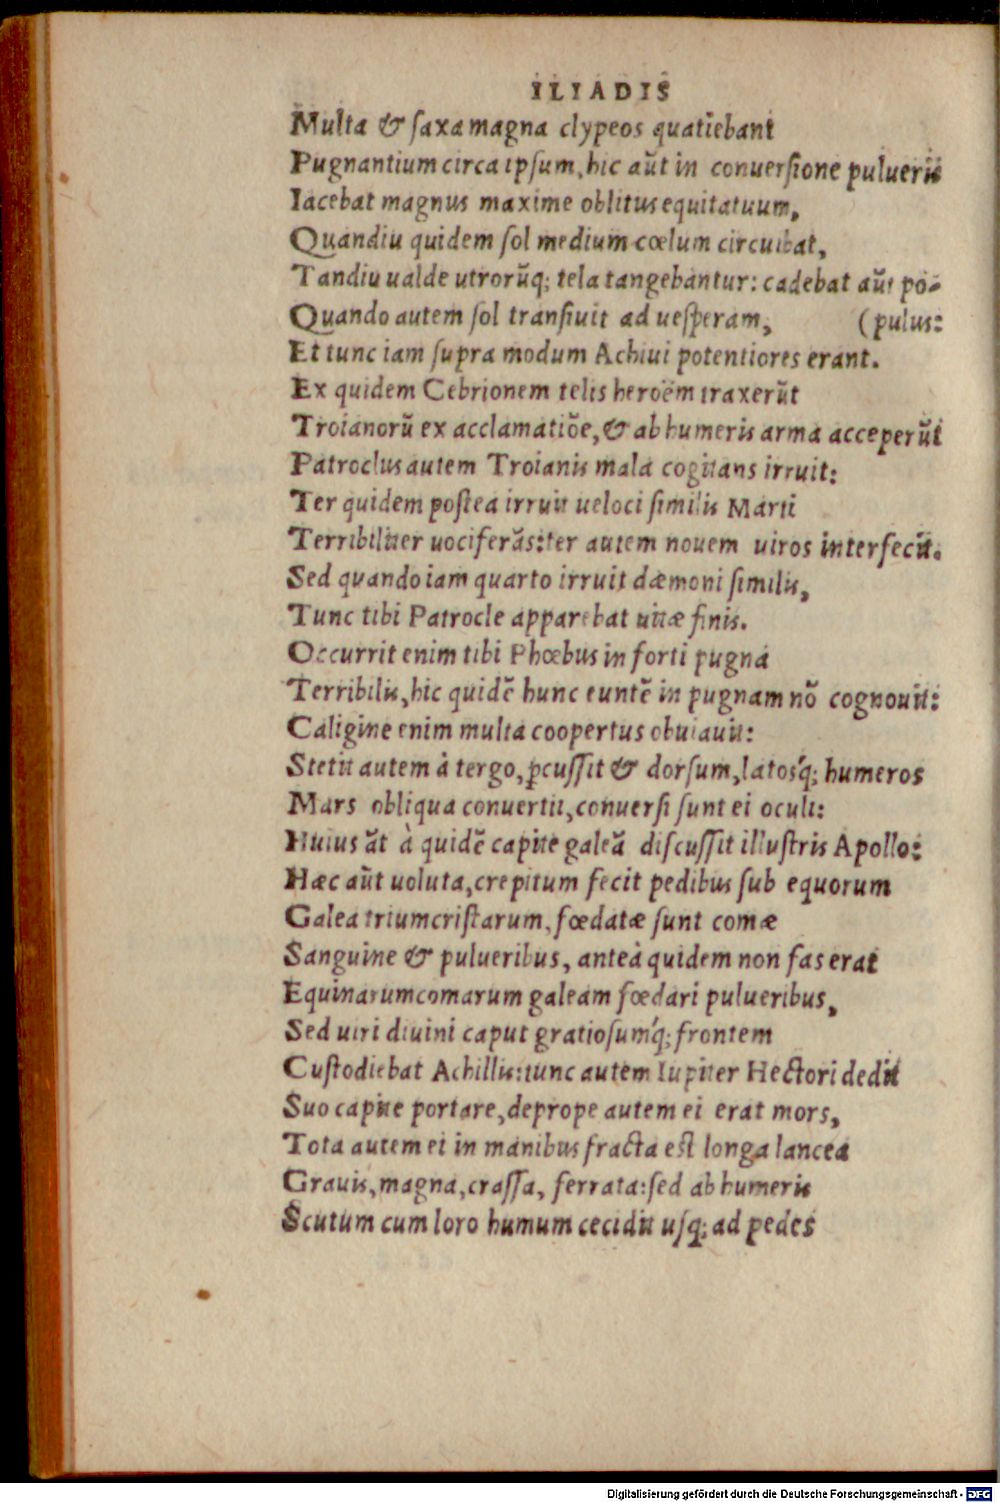 ILIADIS
Multa & ſaxa magna clypeos quatiebant
Pugnantium circa ipſum, hic aũt in conuerſione pulueris
Iacebat magnus maxime oblitus equitatuum,
Quandiu quidem ſol medium cœlum circuibat,
Tandiu ualde utrorũq; tela tangebantur: cadebat aũt po-
Quando autem ſol tranſiuit ad ueſperam, (pulus:
Et tunc iam ſupra modum Achiui potentiores erant.
Ex quidem Cebrionem telis heroëm traxerũt
Troianorũ ex acclamatiõe, & ab humeris arma acceperũt
Patroclus autem Troianis mala cogitans irruit:
Ter quidem poſtea irruit ueloci ſimilis Marti
Terribiliter uociferãs: ter autem nouem uiros interfecit.
Sed quando iam quarto irruit dæmoni ſimilis,
Tunc tibi Patrocle apparebat uitæ finis.
Occurrit enim tibi Phœbus in forti pugna
Terribilis, hic quidẽ hunc euntẽ in pugnam nõ cognouit:
Caligine enim multa coopertus obuiauit:
Stetit autem à tergo, ꝑcuſſit & dorſum, latosq́; humeros
Mars obliqua conuertit, conuerſi ſunt ei oculi:
Huius ãt à quidẽ capite galeã diſcuſſit illuſtris Apollo:
Hæc aũt uoluta, crepitum fecit pedibus ſub equorum
Galea trium criſtarum, fœdatæ ſunt comæ
Sanguine & pulueribus, anteà quidem non fas erat
Equinarum comarum galeam fœdari pulueribus,
Sed uiri diuini caput gratioſumq́; frontem
Cuſtodiebat Achillis: tunc autem Iupiter Hectori dedit
Suo capite portare, deprope autem ei erat mors,
Tota autem ei in manibus fracta eſt longa lancea
Grauis, magna, craſſa, ferrata: ſed ab humeris
Scutum cum loro humum cecidit uſq; ad pedes
Digitalisierung gefördert durch die Deutsche Forschungsgemeinschaft - DFG